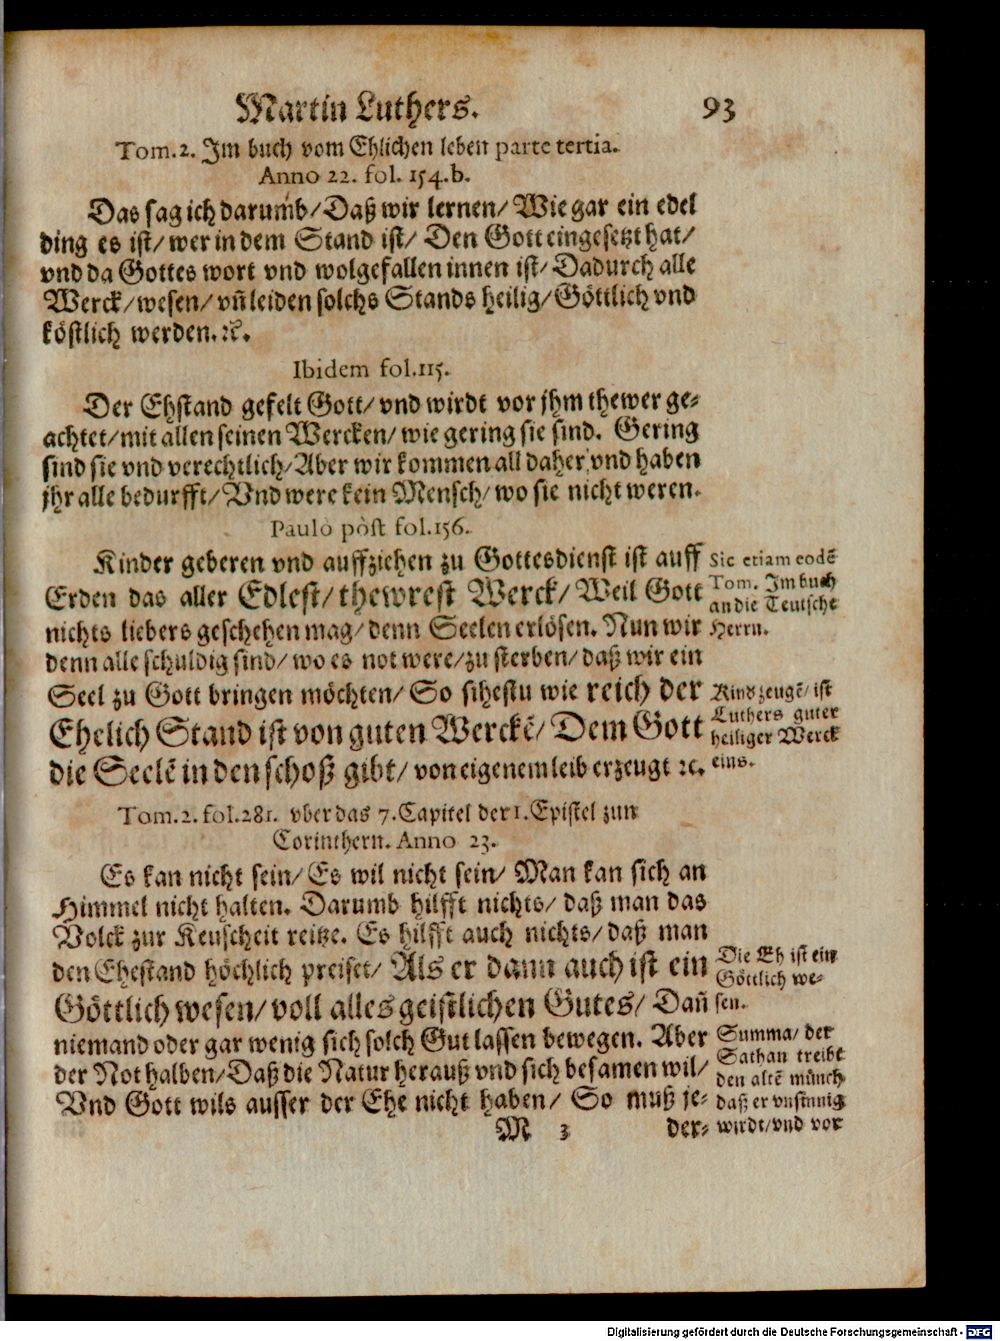 Martin Luthers. 93
Tom.2. Im buch vom Ehlichen leben parte tertia.
Anno 22. fol. 154.b.
Das sag ich darumb/Daß wir lernen/Wie gar ein edel
ding es ist/wer in dem Stand ist/ Den Gott eingesetzt hat/
vnd da Gottes wort vnd wolgefallen innen ist/Dadurch alle
Werck/wesen/vñ leiden solchs Stands heilig/Göttlich vnd
köstlich werden.ꝛc.
Ibidem fol.115.
Der Ehstand gefelt Gott/vnd wirdt vor jhm thewer ge-
achtet/mit allen seinen Wercken/wie gering sie sind. Gering
sind sie vnd verechtlich/Aber wir kommen all daher vnd haben
jhr alle bedurfft/Vnd were kein Mensch/wo sie nicht weren.
Paulò pòst fol.156.
Kinder geberen vnd auffziehen zu Gottesdienst ist auff
Erden das aller Edlest/thewrest Werck/Weil Gott
nichts liebers geschehen mag/denn Seelen erlösen. Nun wir
denn alle schuldig sind/wo es not were/zu sterben/daß wir ein
Seel zu Gott bringen möchten/So sihestu wie reich der
Ehelich Stand ist von guten Werckẽ/Dem Gott
die Seelẽ in den schoß gibt/von eigenem leib erzeugt ꝛc.
Sic etiam eodẽ
Tom. Im buch
an die Teutsche
Herrn.
Kind zeugẽ/ist
Luthers guter
heiliger Werck
eins.
Tom.2.fol.281. vber das 7.Capitel der 1.Epistel zun
Corinthern. Anno 23.
Es kan nicht sein/Es wil nicht sein/Man kan sich an
Himmel nicht halten. Darumb hilfft nichts/daß man das
Volck zur Keuscheit reitze. Es hilfft auch nichts/daß man
den Ehestand höchlich preiset/Als er dann auch ist ein
Göttlich wesen/voll alles geistlichen Gutes/Dañ
niemand oder gar wenig sich solch Gut lassen bewegen. Aber
der Not halben/Daß die Natur herauß vnd sich besamen wil/
Vnd Gott wils ausser der Ehe nicht haben/So muß je-
Die Eh ist ein
Göttlich we-
sen.
Summa/der
Sathan treibt
den altẽ münch
daß er vnsinnig
wirdt/vnd vor
M 3 der-
Digitalisierung gefördert durch die Deutsche Forschungsgemeinschaft - DFG